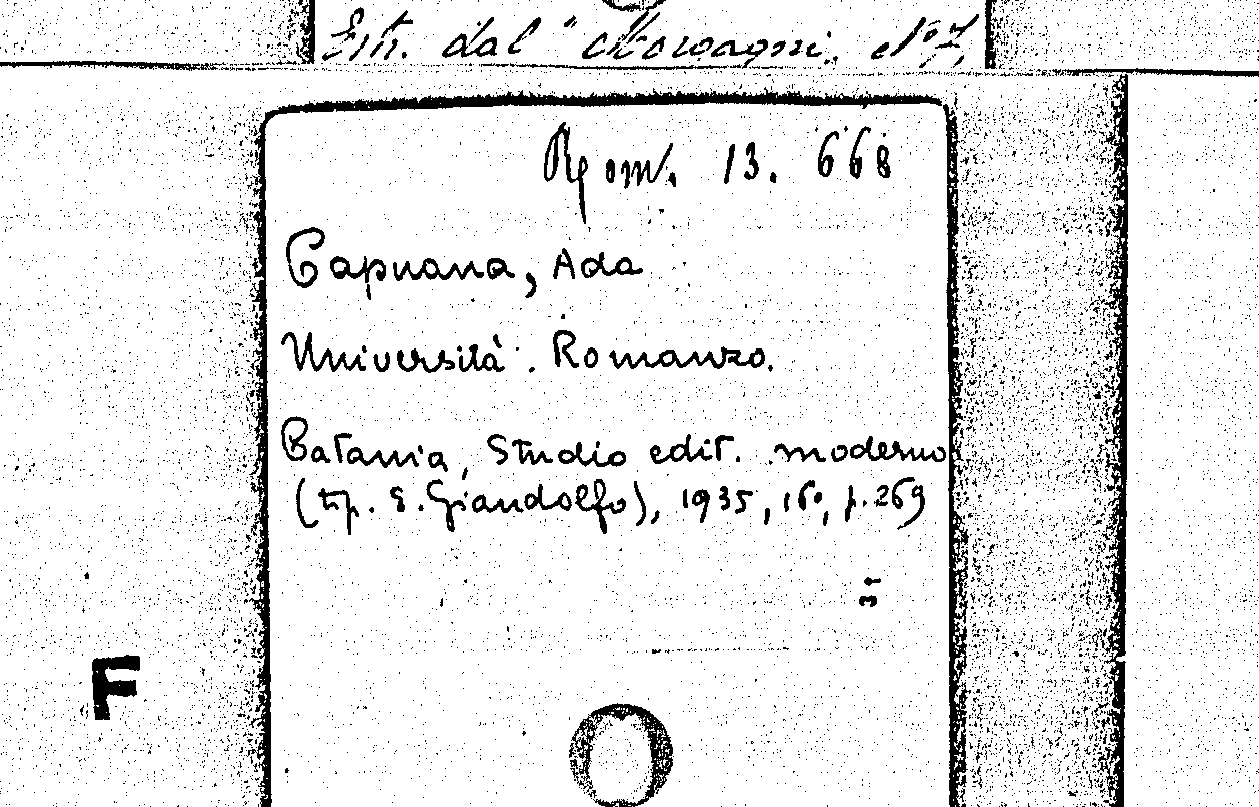 Estr. dal "Morgagni. N° 7,
Rom. 13. 668
Capuana, Ada
Università. Romanzo.
Catania, Studio edit. moderno
(tip. S. Giandolfo), 1935, 16°, p. 269
F